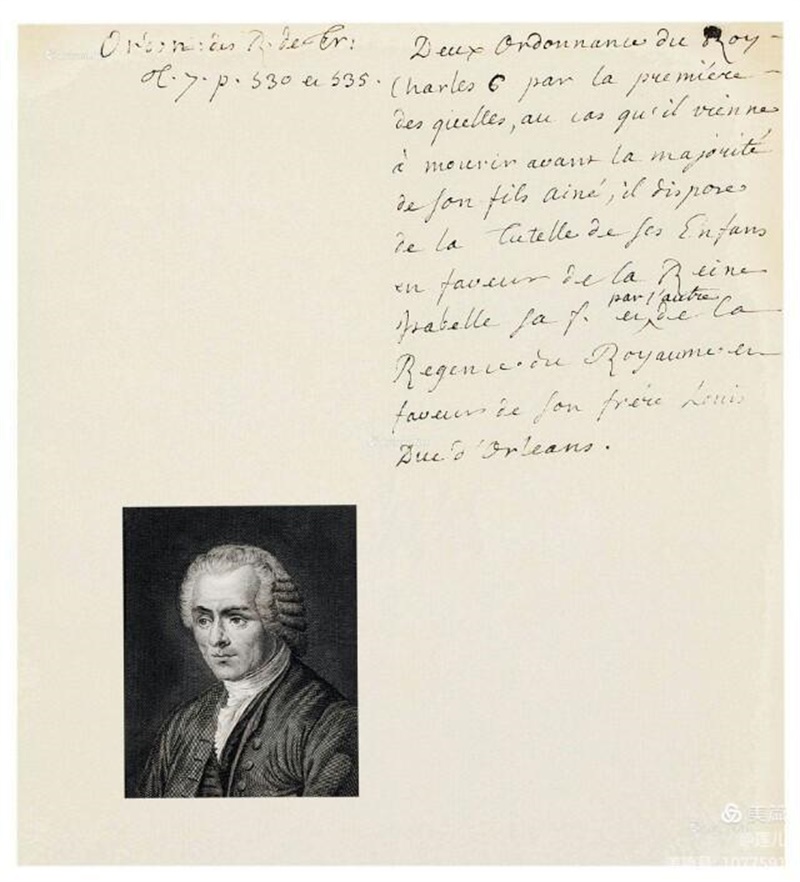 Ordonn: des R. de Fr:
t. 7. p. 530 et 535.
Deux Ordonnance du Roy
Charles 6 par la premiére
des quelles, au cas qu'il vienne
à mourir avant la majorité
de son fils ainé, il dispose
de la Tutelle de ses Enfans
en faveur de la Reine
Isabelle sa f. et par l'autre de la
Regence du Royaume en
faveur de son frére Louis
Duc d'Orleans.
美篇